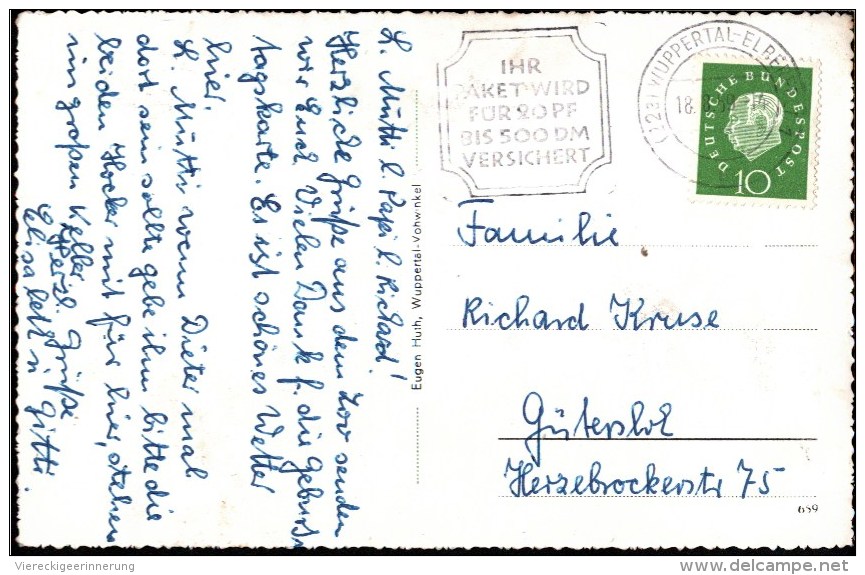 L. Mutti l. Papi l. Richard!
Herzliche Grüße aus dem Zoo senden
wir Euch. Vielen Dank f. die Geburts
tagskarte. Es ist schönes Wetter
hier.
L. Mutti wenn Dieter mal
dort sein sollte gebe ihm bitte die
beiden Hocker mit für hier, stehen
im großen Keller
Herzl. Grüße
Elisabeth u Gitti.
Eugen Huth, Wuppertal-Vohwinkel
IHR
PAKET WIRD
FÜR 20 PF
BIS 500 DM
VERSICHERT
WUPPERTAL-ELBE
18.
DEUTSCHE BUNDESPOST
10
Familie
Richard Kruse
Gütersloh
Herzebrockerstr 75
689
Viereckigeerinnerung
delcampe.net